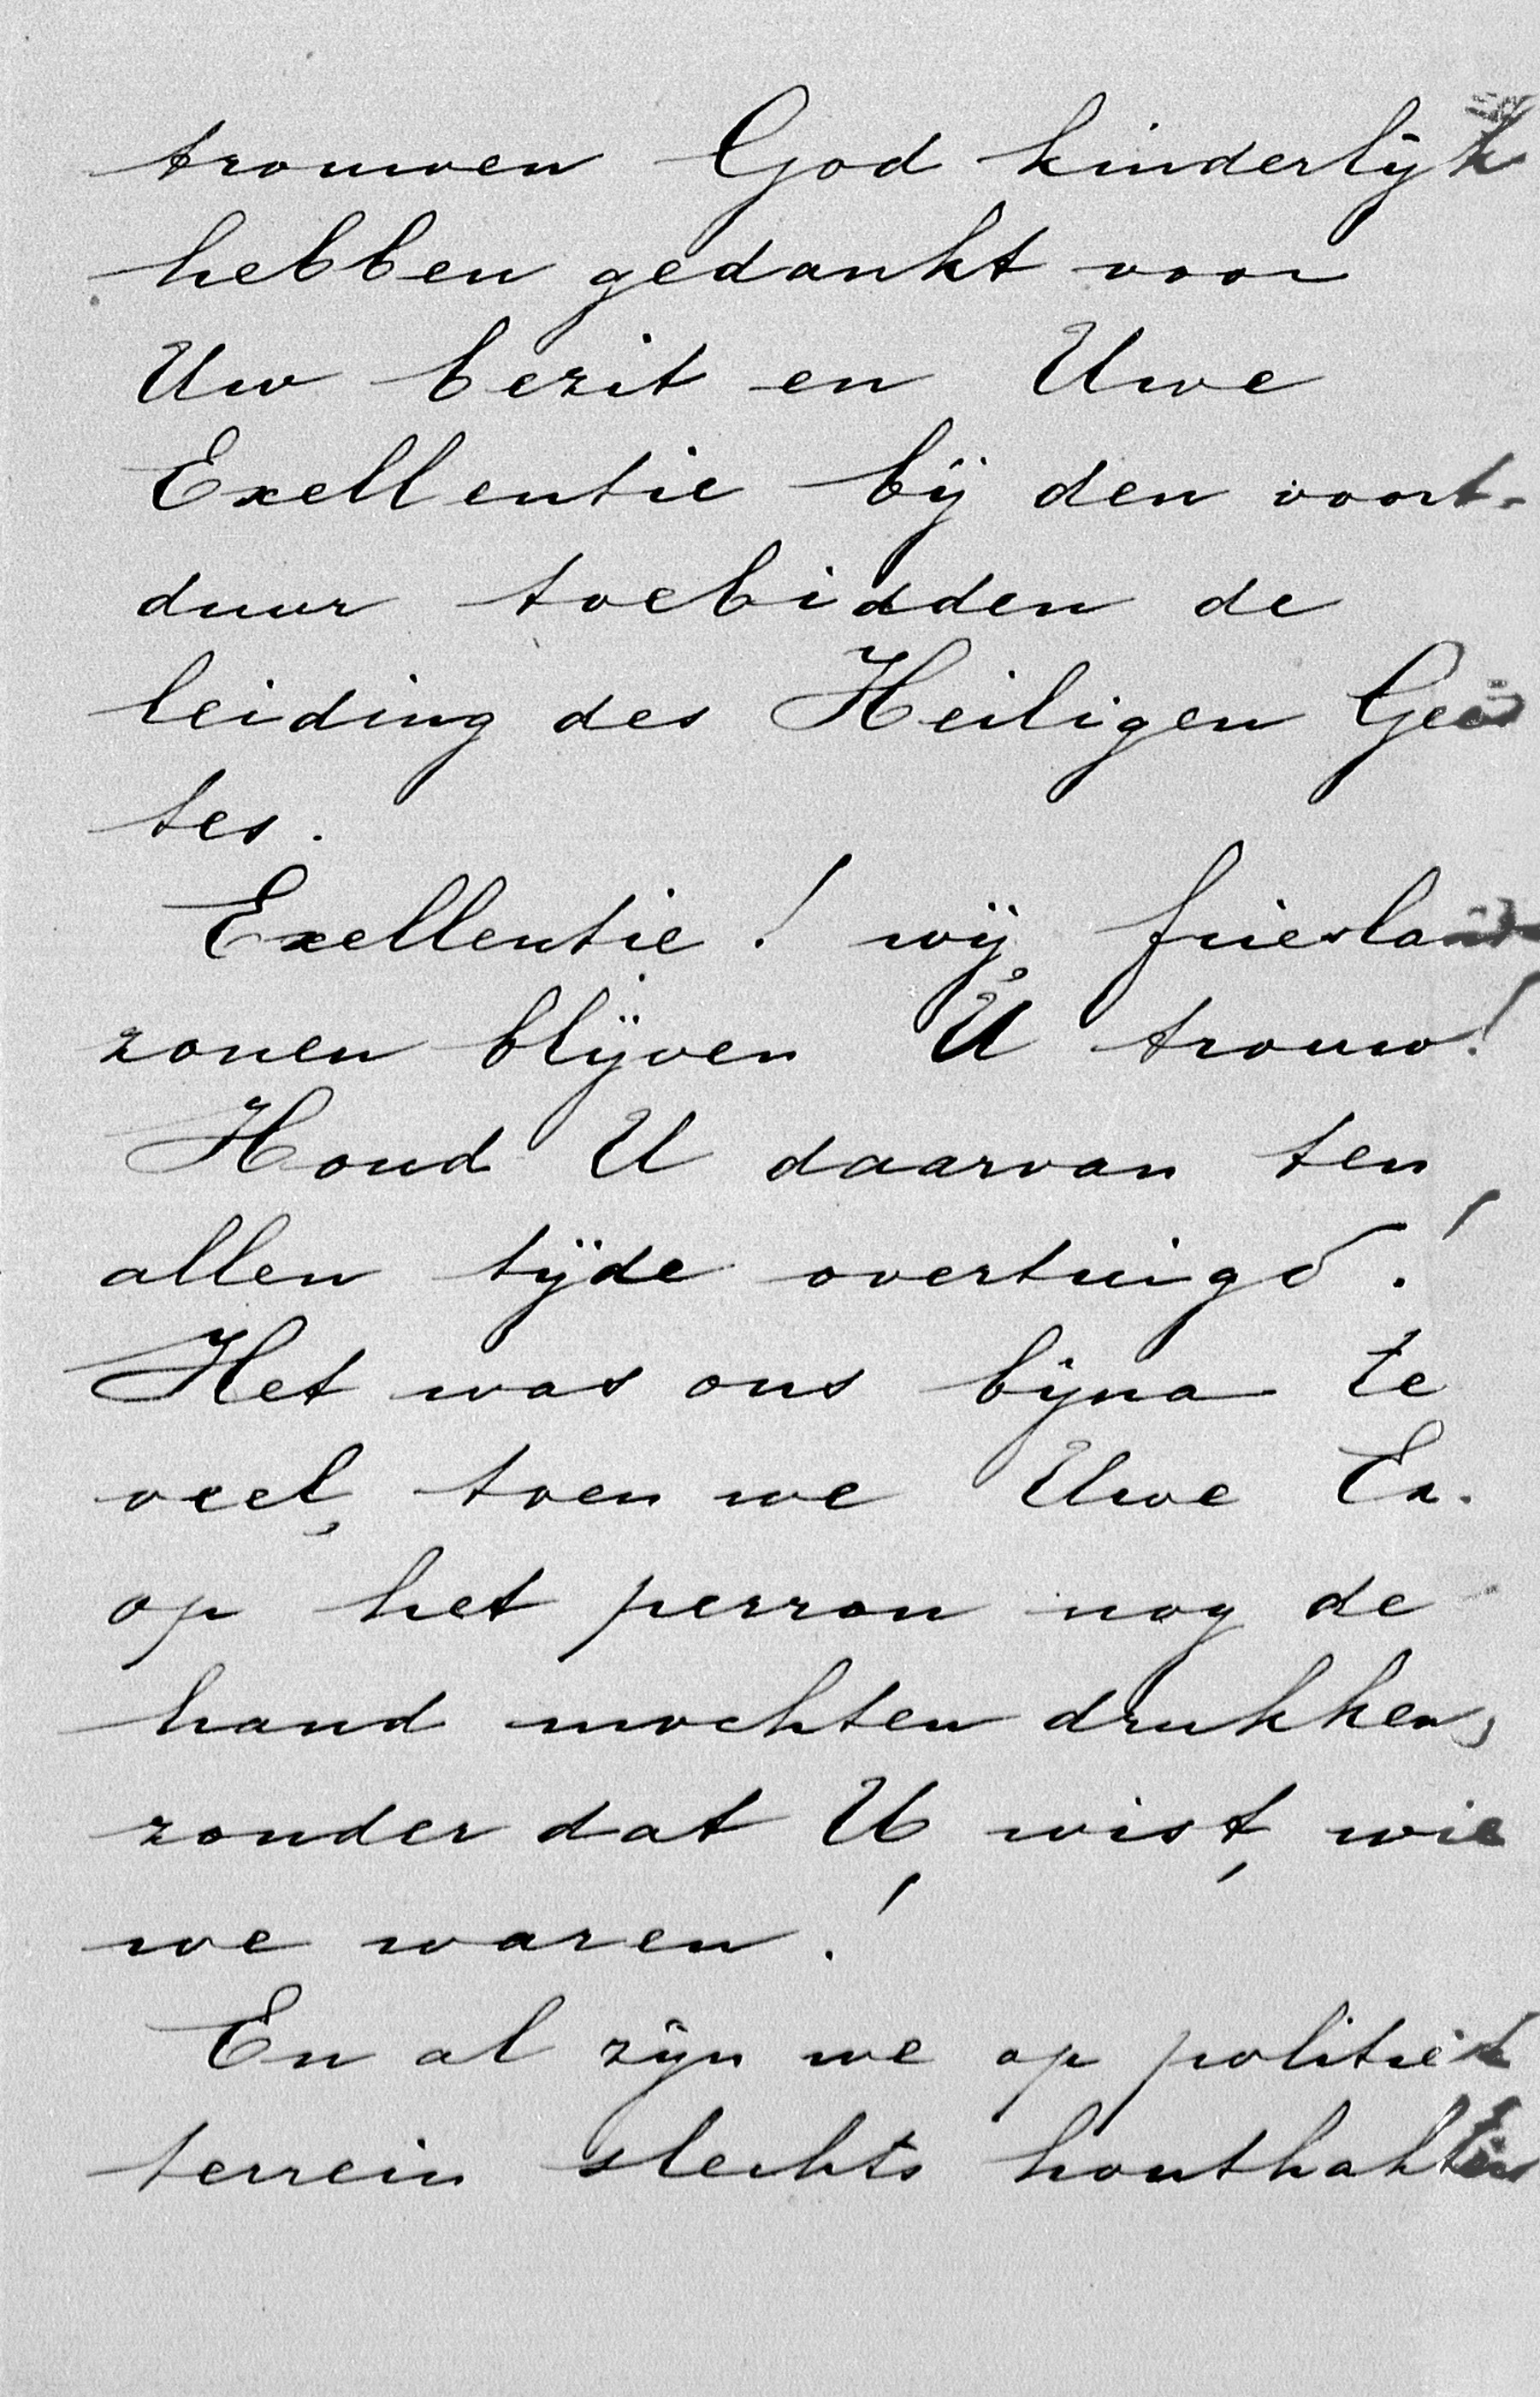 trouwen God kinderlijk
hebben gedankt voor
Uw bezit en Uwe
Exellentie bij den voort-
duur toebidden de
leiding des Heiligen Gees
tes.
Exellentie! wij frieslands
zonen blijven U trouw!
Houd U daarvan ten
allen tijde overtuigd!
Het was ons bijna te
veel, toen we Uwe Ex.
op het perron nog de
hand mochten drukken,
zonder dat U, wist, wie
we waren!
En al zijn we op politiek
terrein slechts houthakkers